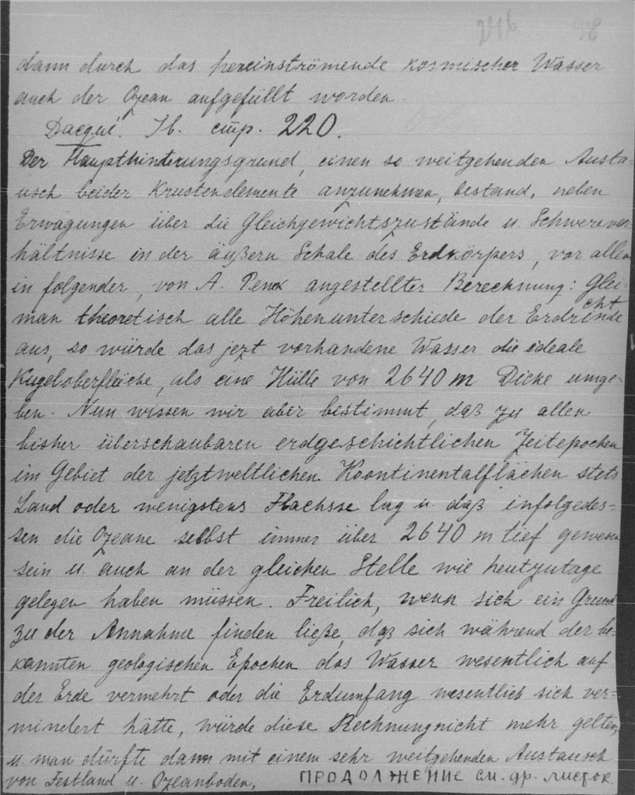 dann durch das hereinströmende kosmischer Wasser
auch der Ozean aufgefüllt worden.
Dacqué. Ib. стр. 220.
Der Haupthinderungsgrund, einen so weitgehenden Austa-
usch beider Krustenelemente anzunehmen, bestand, neben
Erwägungen über die Gleichgewichtszustände u. Schwerever
hältnisse in der äußern Schale des Erdkörpers, vor allem
in folgender, von A. Penk angestellter Berechnung: Glei-
cht
man theoretisch alle Höhenunterschiede der Erdrinde
aus, so würde das jezt vorhandene Wasser die ideale
Kugeloberfläche, als eine Hülle von 2640 m Dicke umge-
ben. Nun wissen wir aber bestimmt, daß zu allen
bisher überschaubaren erdgeschichtlichen Zeitepochen
im Gebiet der jetztweltlichen Koontinentalflächen stets
Land oder wenigstens lag u. daß infolgedes-
sen die Ozeane selbst immer über 2640 m tief gewesen
sein u. auch an der gleichen Stelle wie heutzutage
gelegen haben müssen. Freilich, wenn sich ein Grund
zu der Annahme finden ließe, daß sich während der be-
kannten geologischen Epochen das Wasser wesentlich auf
der Erde vermehrt oder die Erdumfang wesentlich sich ver-
mindert hätte, würde diese Rechnung nicht mehr gelten,
u. man dürfte dann mit einem sehr weitgehenden Austausch
von Festland u. Ozeanboden, ПРОДОЛЖЕНИЕ см. др. листок